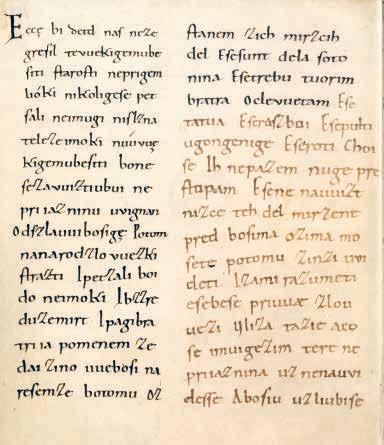 Eccę bi detd naſ neze
greſil tevuekigemube
ſiti ſtaroſti neprigem
lióki nikoligeſe pet
ſali neimugi niſlzna
teleze imoki nuúvue
kigemubeſiti bone
ſezavuiztiubui ne
priiazninu uvignan
Odszlauuibosigę Potom
nanarodzlovuezki
ſtrazti Ipetzali boi
do neimoki Ibzzre
duzemirt Ipagibra
triia pomenem Ze
dai zino uuebosi na
resemze botomu Oz
ſtanem zich mirzcih
del Eſeſunt dela ſoto
nina Eſetrebu tuorim
bratra Oclevuetam Eſe
tatua Eſeraszboi Eſepulti
ugongenige Eſeroti Choi
se Ih nepazem nuge pre
ſtopam Eſene nauuizt
nizce teh del mirzene
pred bosima ozima mo
sete potomu zinzi uvi
deti Izami razumeti
eſebeſe priuuæ zlou
uezi Uliza tazie aco
se imuigezim tere ne
priiaznina uznenauvi
deſſe Abosiu uzliubise